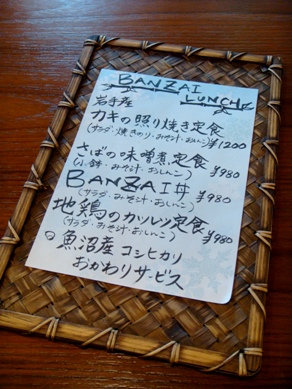 BANZAI
LUNCH
岩手産
カキの照り焼き定食
(サラダ・焼きのり・みそ汁・おしんこ) ¥1200
さばの味噌煮定食
(小鉢・みそ汁・おしんこ) ¥980
BANZAI丼
(サラダ・みそ汁・おしんこ) ¥980
地鶏のカツレツ定食
(サラダ・みそ汁・おしんこ) ¥980
魚沼産コシヒカリ
おかわりサービス